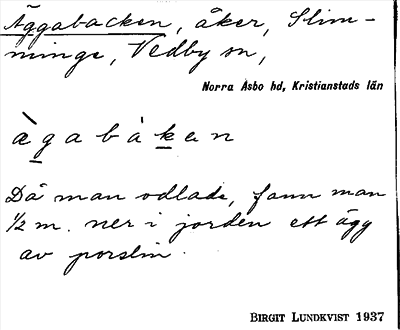 Äggabacken, åker, Slim-
minge, Vedby sn,
Norra Åsbo hd, Kristianstads län
àgabàken
Då man odlade, fann man
1/2 m. ner i jorden ett ägg
av porslin.
BIRGIT LUNDKVIST 1937